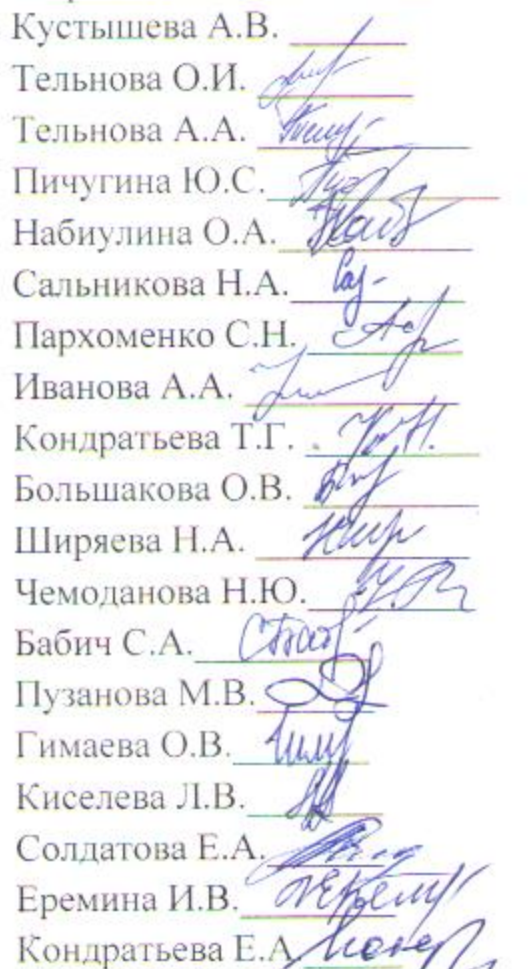 Кустышева А.В.
Тельнова О.И.
Тельнова А.А.
Пичугина Ю.С.
Набиулина О.А.
Сальникова Н.А.
Пархоменко С.Н.
Иванова А.А.
Кондратьева Т.Г.
Большакова О.В.
Ширяева Н.А.
Чемоданова Н.Ю.
Бабич С.А.
Пузанова М.В.
Гимаева О.В.
Киселева Л.В.
Солдатова Е.А.
Еремина И.В.
Кондратьева Е.А.